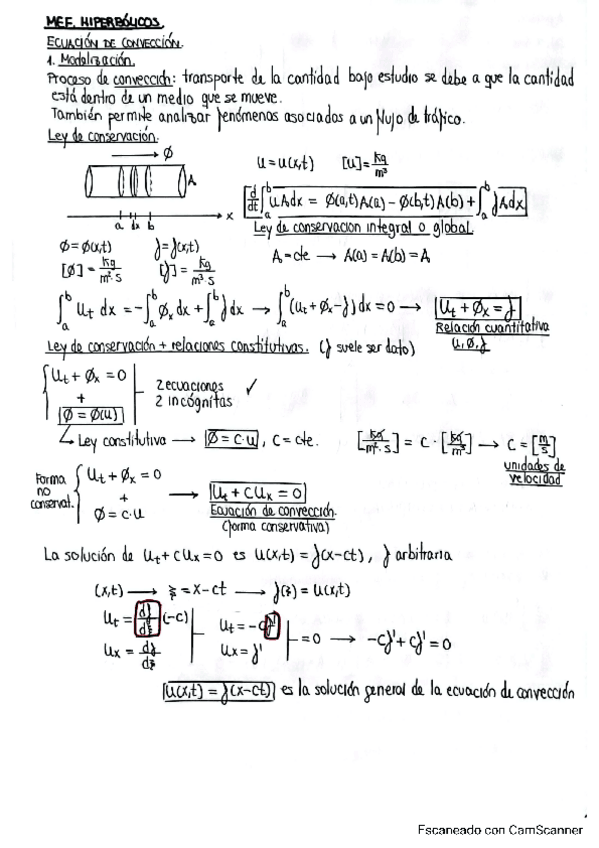 MEF. HIPERBÓLICOS.
ECUACIÓN DE CONVECCIÓN.
1. Modelización.
Proceso de convección: transporte de la cantidad bajo estudio se debe a que la cantidad
está dentro de un medio que se mueve.
También permite analizar fenómenos asociados a un flujo de tráfico.
Ley de conservación.
→ Ø
A
a dx b x
u = u(x,t) [u] = kg/m³
d/dt ∫ₐᵇ uAdx = Ø(a,t)A(a) - Ø(b,t)A(b) + ∫ₐᵇ fAdx
Ley de conservacion integral o global.
Ø = Ø(x,t) f = f(x,t)
[Ø] = kg/m²·s [f] = kg/m³·s
A = cte → A(a) = A(b) = A
∫ₐᵇ uₜ dx = -∫ₐᵇ Øₓ dx + ∫ₐᵇ f dx → ∫ₐᵇ (uₜ + Øₓ - f) dx = 0 → uₜ + Øₓ = f
Relación cuantitativa
u, Ø, f
Ley de conservación + relaciones constitutivas. (f suele ser dato)
uₜ + Øₓ = 0
+
Ø = Ø(u)
2 ecuaciones
2 incógnitas ✓
Ley constitutiva → Ø = c·u, c = cte. [kg/m²·s] = c · [kg/m³] → c = [m/s]
unidades de
velocidad
Forma
no
conservat.
uₜ + Øₓ = 0
+
Ø = c·u
→ uₜ + cuₓ = 0
Ecuación de convección.
(forma conservativa)
La solución de uₜ + cuₓ = 0 es u(x,t) = f(x-ct), f arbitraria
(x,t) → ξ = x-ct → f(ξ) = u(x,t)
uₜ = df/dξ (-c)
uₓ = df/dξ
uₜ = -cf'
uₓ = f'
= 0 → -cf' + cf' = 0
u(x,t) = f(x-ct) es la solución general de la ecuación de convección
Escaneado con CamScanner